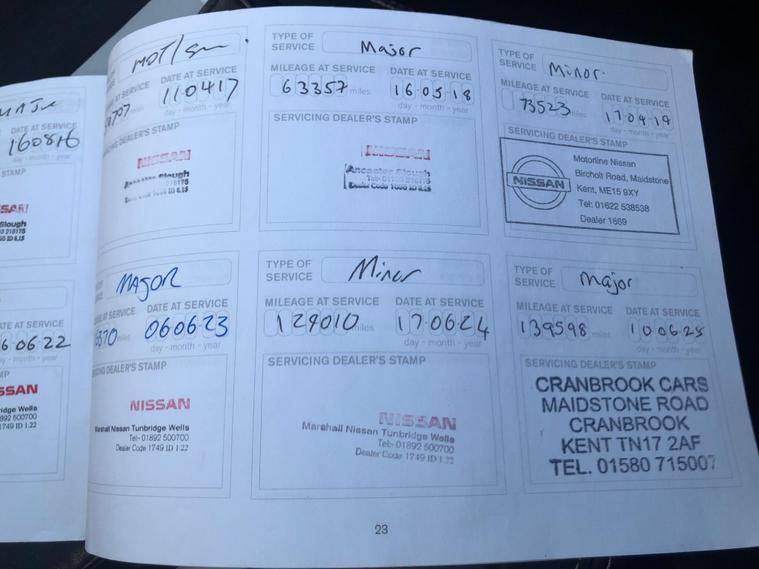 MAJ
DATE AT SERVICE
160816
day - month - year
STAMP
SSAN
Slough
MOT/
DATE AT SERVICE
miles
110417
day - month - year
SERVICING DEALER'S STAMP
NISSAN
TYPE OF SERVICE
Major
MILEAGE AT SERVICE
DATE AT SERVICE
63357 miles
16 05 18
day - month - year
SERVICING DEALER'S STAMP
NISSAN
Ancaster Slough
TYPE OF SERVICE
Minor
MILEAGE AT SERVICE
DATE AT SERVICE
73523 miles
17 04 19
day - month - year
SERVICING DEALER'S STAMP
NISSAN
Motorline Nissan
Bircholt Road, Maidstone
Kent, ME15 9XY
Tel: 01622 538538
Dealer 1669
DATE AT SERVICE
6 06 22
day - month - year
SSAN
bridge Wells
892 500700
1749 ID 1.22
MAJOR
MILEAGE AT SERVICE
DATE AT SERVICE
miles
060623
day - month - year
SERVICING DEALER'S STAMP
NISSAN
Marshall Nissan Tunbridge Wells
Tel:- 01892 500700
Dealer Code 1749 ID 1.22
TYPE OF SERVICE
Minor
MILEAGE AT SERVICE
DATE AT SERVICE
129010 miles
170624
day - month - year
SERVICING DEALER'S STAMP
NISSAN
Marshall Nissan Tunbridge Wells
Tel:- 01892 500700
Dealer Code 1749 ID 1.22
TYPE OF SERVICE
Major
MILEAGE AT SERVICE
DATE AT SERVICE
139598 miles
10 06 25
day - month - year
SERVICING DEALER'S STAMP
CRANBROOK CARS
MAIDSTONE ROAD
CRANBROOK
KENT TN17 2AF
TEL. 01580 715007
23